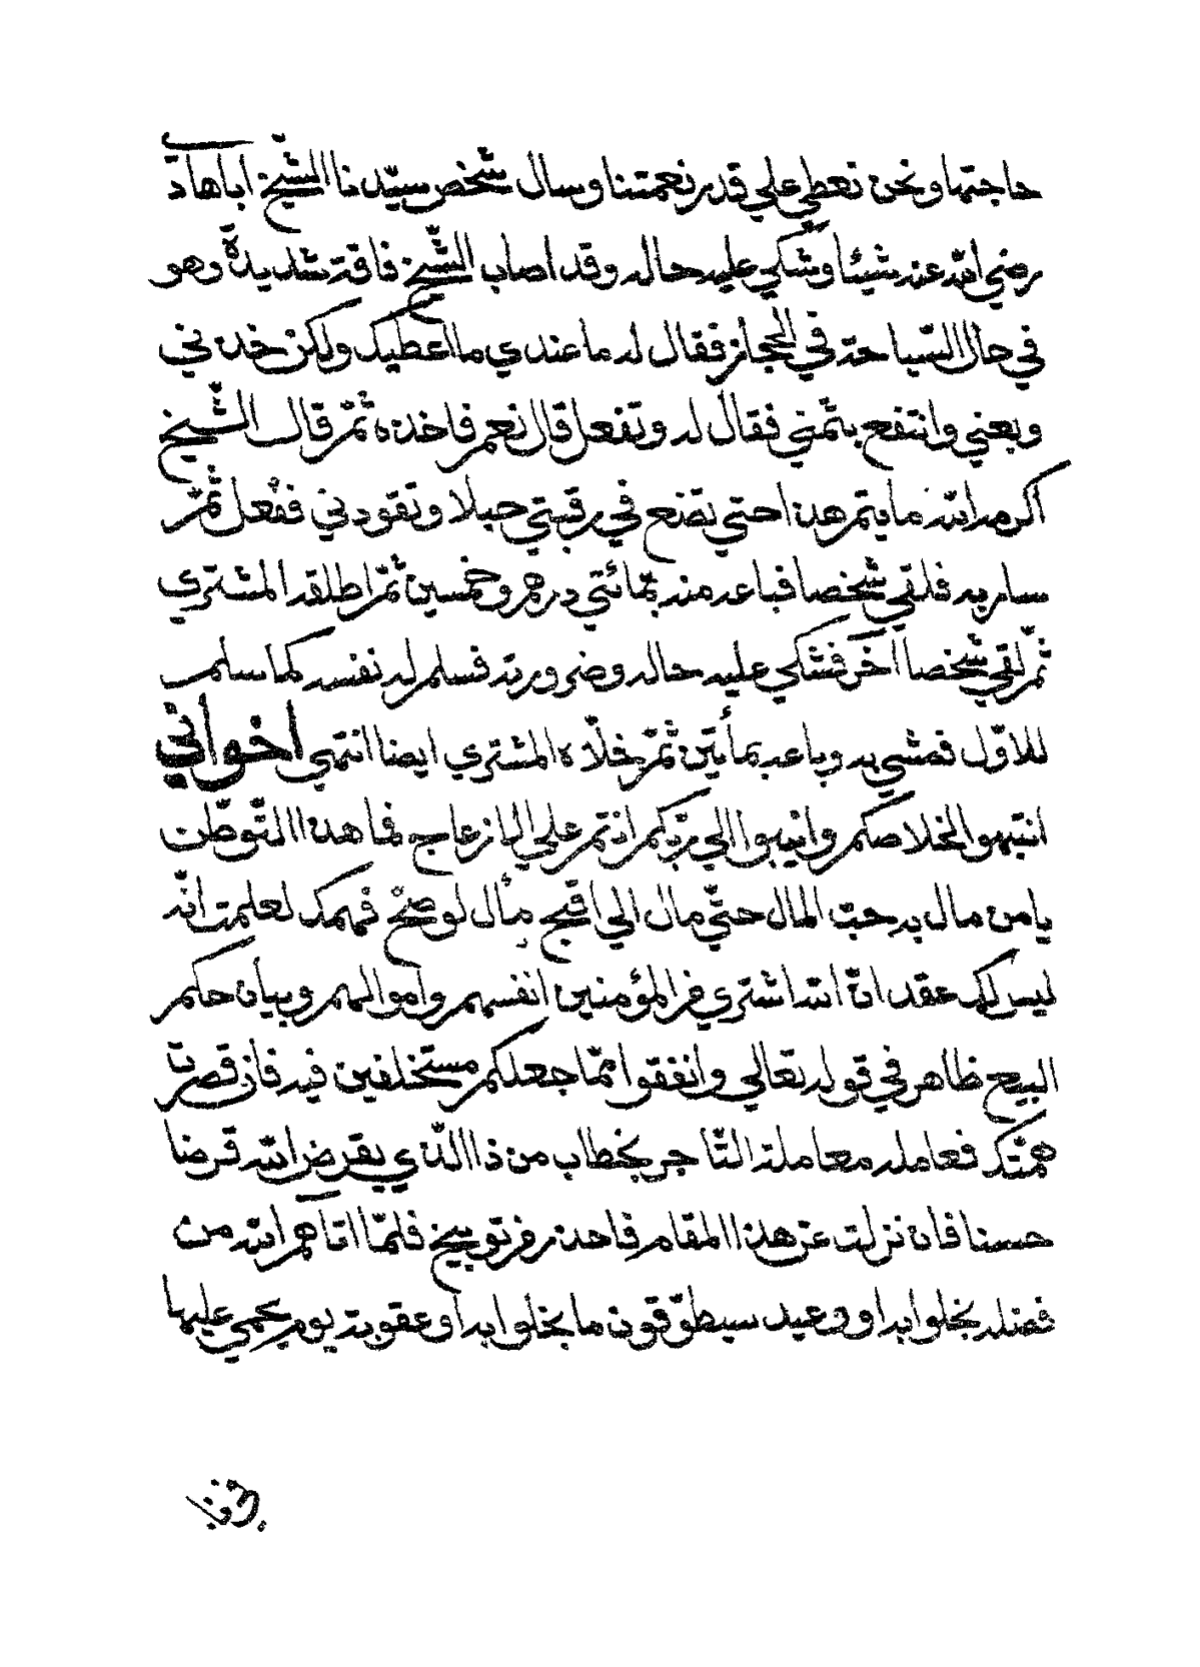 حاجتها ونحن نعطي علي قدر نعمتنا وسال شخص سيّدنا الشّيخ اباهادي
رضي الله عنه شيئا وشكي عليه حاله وقد اصاب الشّيخ فاقة شديدة وهو
في حال السّياحة في الحجاز فقال له ما عندي ما اعطيك ولكن خذني
وبعني وانتفع بثمني فقال له وتفعل قال نعم فاخذه ثمّ قال الشّيخ
اكرمه الله ما يتم هذا حتي تضع في رقبتي حبلا وتقودني ففعل ثمّ
سار به فلقي شخصا فباعه منه بمائتي درهم وخمسين ثمّ اطلقه المشتري
ثمّ لقي شخصا آخر فشكي عليه حاله وضرورته فسلم له نفسه كما سلم
للاوّل فمشي به وباعه بمأتين ثمّ خلّاه المشتري ايضا انتهي اخواني
انتبهوا لخلاصكم وانيبوا الي ربّكم انتم علي الانزعاج فما هذا التّوطّن
يا من مال به حبّ المال حتّي مال الي اقبح مأل لو صحّ فهمك لعلمت انّه
ليس لك عقد انّ الله اشتري من المؤمنين انفسهم واموالهم وبيان حكم
البيع ظاهر في قوله تعالي وانفقوا ممّا جعلكم مستخلفين فيه فان قصرت
همّتك فعامله معاملة التّاجر بخطاب من ذا الّذي يقرض الله قرضا
حسنا فان نزلت عن هذا المقام فاحذر من توبيخ فلمّا اتاهم الله من
فضله بخلوا به او وعيد سيطوّقون ما بخلوا به او عقوبة يوم يحمي عليها